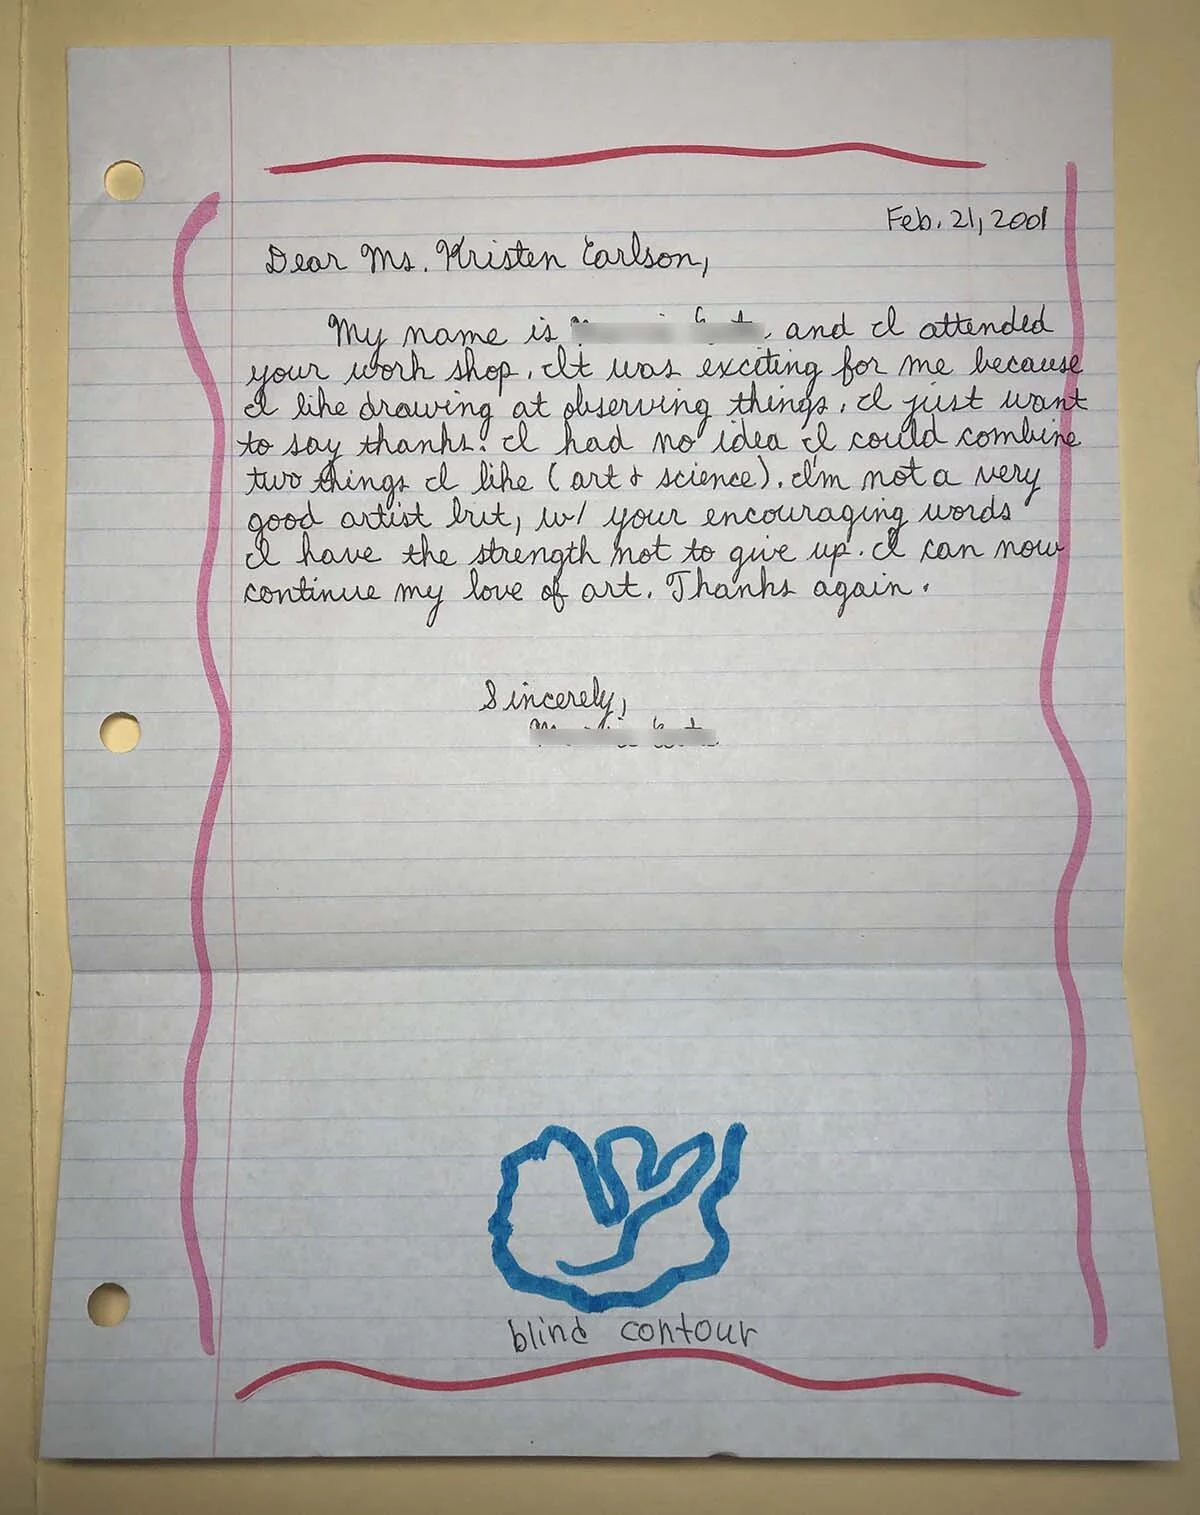 Feb. 21, 2001
Dear Ms. Kristen Carlson,
My name is , and I attended
your work shop. It was exciting for me because
I like drawing at observing things. I just want
to say thanks! I had no idea I could combine
two things I like (art & science). I'm not a very
good artist but, w/ your encouraging words
I have the strength not to give up. I can now
continue my love of art. Thanks again.
Sincerely,
blind contour